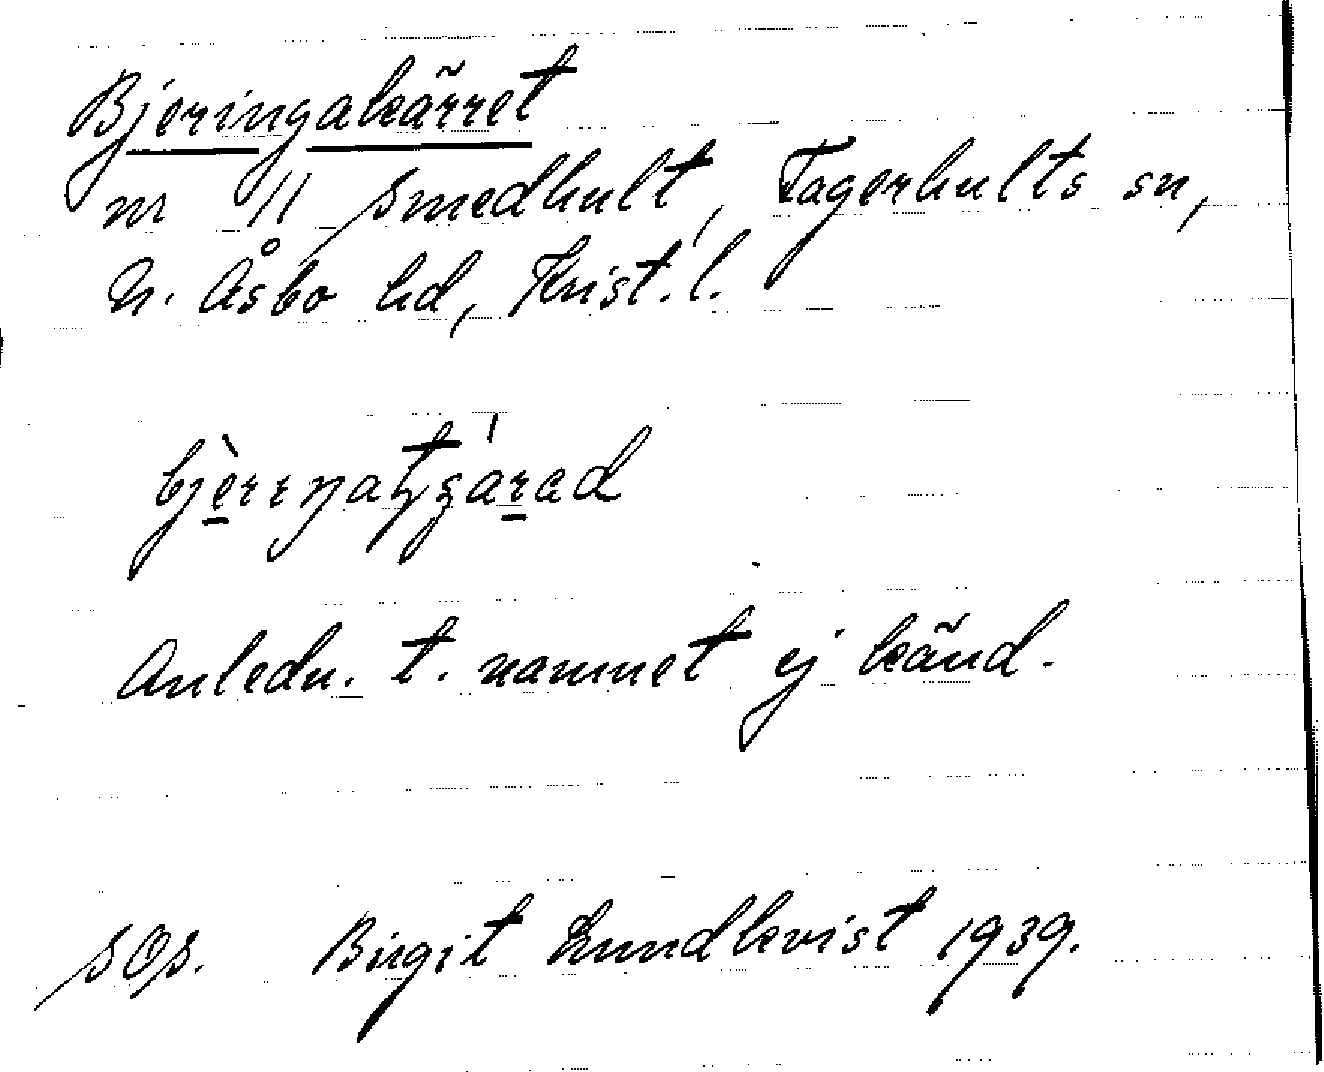 Bjeringakärret
nr 11 Smedhult, Fagerhults sn,
N. Åsbo hd, Krist. l.
Anledn. t. namnet ej känd.
SOS. Birgit Lundkvist 1939.